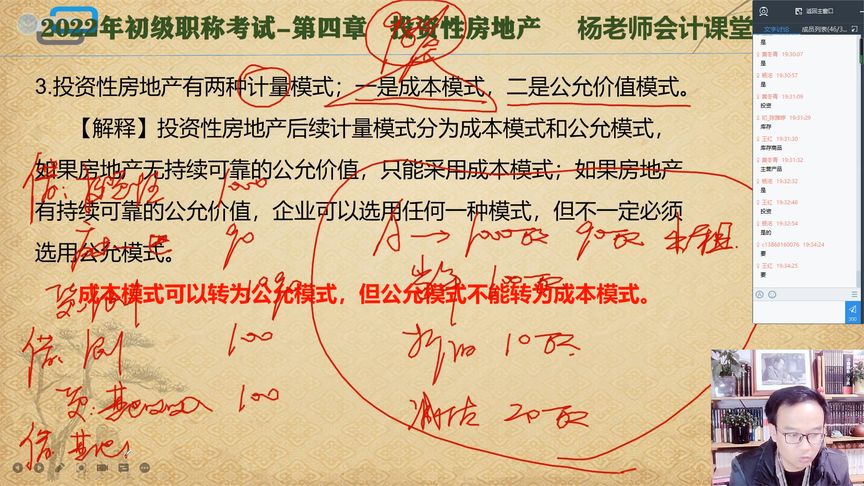 2022年初级职称考试-第四章 投资性房地产 杨老师会计课堂
3.投资性房地产有两种计量模式；一是成本模式，二是公允价值模式。
【解释】投资性房地产后续计量模式分为成本模式和公允模式，
如果房地产无持续可靠的公允价值，只能采用成本模式；如果房地产
有持续可靠的公允价值，企业可以选用任何一种模式，但不一定必须
选用公允模式。
成本模式可以转为公允模式，但公允模式不能转为成本模式。
借：投资性 1000
90
1090
借： 100
贷：其他业务收入 100
借：其他
A → 1000万 90万
100万
折旧 10万
20万
返回主窗口
文字讨论 成员列表(46/3
是
19:30:07
是
19:30:57
是
19:31:09
投资
19:31:29
库存
王红 19:31:30
库存商品
19:31:32
主营产品
19:32:32
是
王红 19:32:46
投资
19:32:54
是的
c13866160076 19:34:24
要
王红 19:34:25
要
300